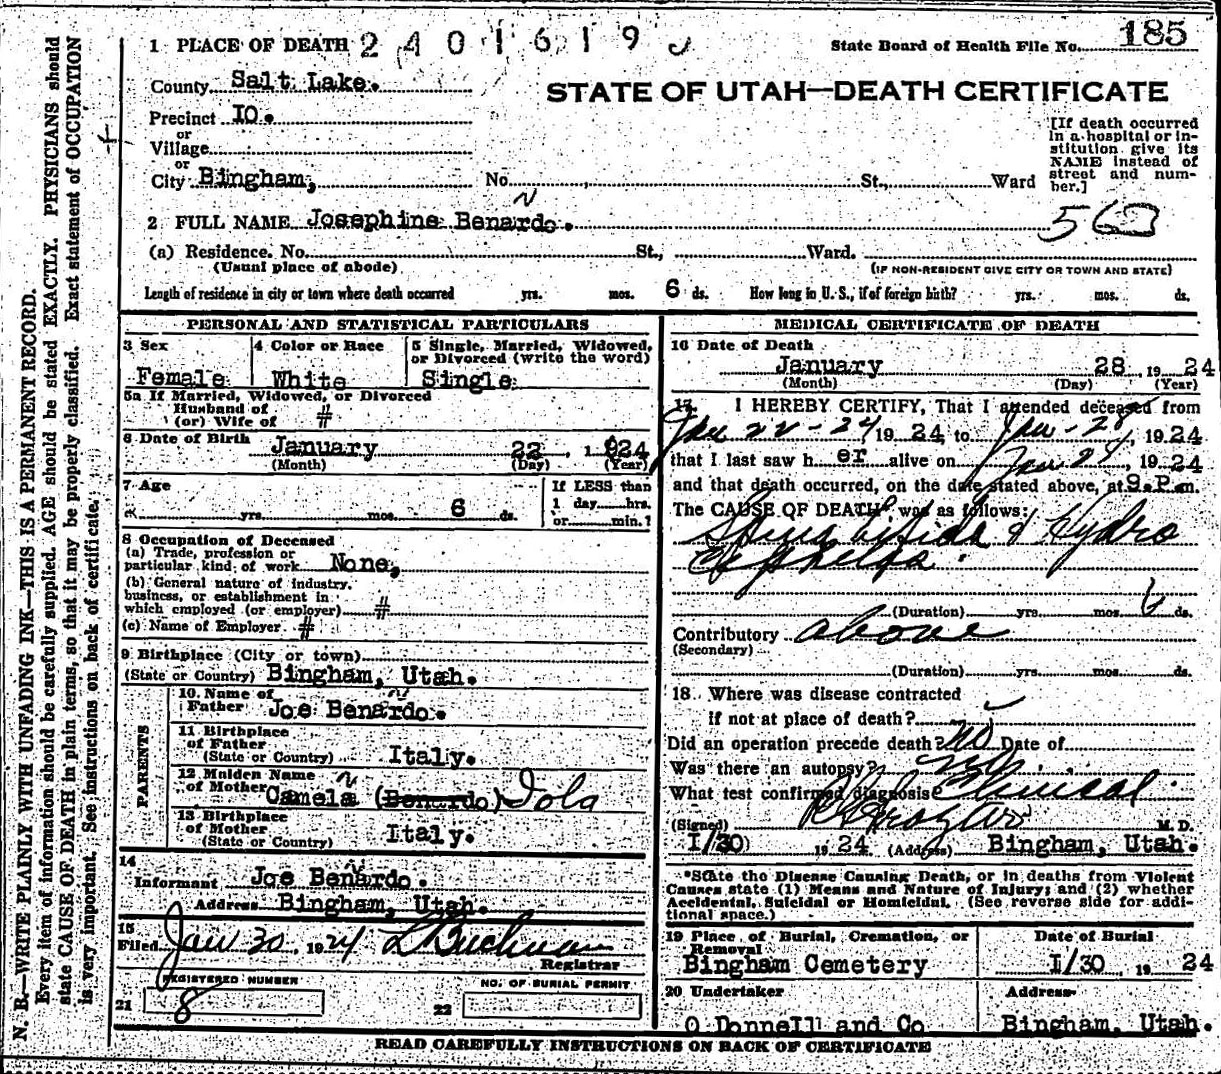 1 PLACE OF DEATH 2 4 0 1 6 1 9
State Board of Health File No. 185
County Salt Lake.
STATE OF UTAH—DEATH CERTIFICATE
Precinct IO.
or
Village
or
City Bingham, No. , St., Ward
[If death occurred in a hospital or institution give its NAME instead of street and number.]
2 FULL NAME Josephine Benardo.
560
(a) Residence. No. St., Ward.
(Usual place of abode) (IF NON-RESIDENT GIVE CITY OR TOWN AND STATE)
Length of residence in city or town where death occurred yrs. mos. 6 ds. How long in U. S., if of foreign birth? yrs. mos. ds.
PERSONAL AND STATISTICAL PARTICULARS
3 Sex Female
4 Color or Race White
5 Single, Married, Widowed, or Divorced (write the word) Single
5a If Married, Widowed, or Divorced
Husband of
(or) Wife of #
6 Date of Birth January 22, 1924
(Month) (Day) (Year)
7 Age
yrs. mos. 6 ds.
If LESS than
1 day hrs.
or min.?
8 Occupation of Deceased
(a) Trade, profession or
particular kind of work None,
(b) General nature of industry.
business, or establishment in
which employed (or employer) #
(c) Name of Employer #
9 Birthplace (City or town)
(State or Country) Bingham, Utah.
PARENTS
10 Name of
Father Joe Benardo.
11 Birthplace
of Father
(State or Country) Italy.
12 Maiden Name
of Mother Camela (Benardo) Iola
13 Birthplace
of Mother
(State or Country) Italy.
14
Informant Joe Benardo.
Address Bingham, Utah.
15
Filed Jan 30, 1924 L Buchman
Registrar
REGISTERED NUMBER
21 8
NO. OF BURIAL PERMIT
22
MEDICAL CERTIFICATE OF DEATH
16 Date of Death
January 28, 1924
(Month) (Day) (Year)
17 I HEREBY CERTIFY, That I attended deceased from
Jan 22-24 19 24 to Jan-28, 1924
that I last saw her alive on Jan 28, 1924
and that death occurred, on the date stated above, at 9.P.m.
The CAUSE OF DEATH* was as follows:
Spina bifida & Hydro
cephelas.
(Duration) yrs. mos. 6 ds.
Contributory above
(Secondary)
(Duration) yrs. mos. ds.
18 Where was disease contracted
if not at place of death?
Did an operation precede death? no Date of
Was there an autopsy? no.
What test confirmed diagnosis? Clinical
(Signed) M. D.
I/30 19 24 (Address) Bingham, Utah.
*State the Disease Causing Death, or in deaths from Violent
Causes state (1) Means and Nature of Injury; and (2) whether
Accidental, Suicidal or Homicidal. (See reverse side for addi-
tional space.)
19 Place of Burial, Cremation, or
Removal
Bingham Cemetery
Date of Burial
I/30, 19 24
20 Undertaker
O Donnell and Co
Address
Bingham, Utah.
READ CAREFULLY INSTRUCTIONS ON BACK OF CERTIFICATE
N. B.—WRITE PLAINLY WITH UNFADING INK—THIS IS A PERMANENT RECORD.
Every item of information should be carefully supplied. AGE should be stated EXACTLY. PHYSICIANS should
state CAUSE OF DEATH in plain terms, so that it may be properly classified. Exact statement of OCCUPATION
is very important. See instructions on back of certificate.